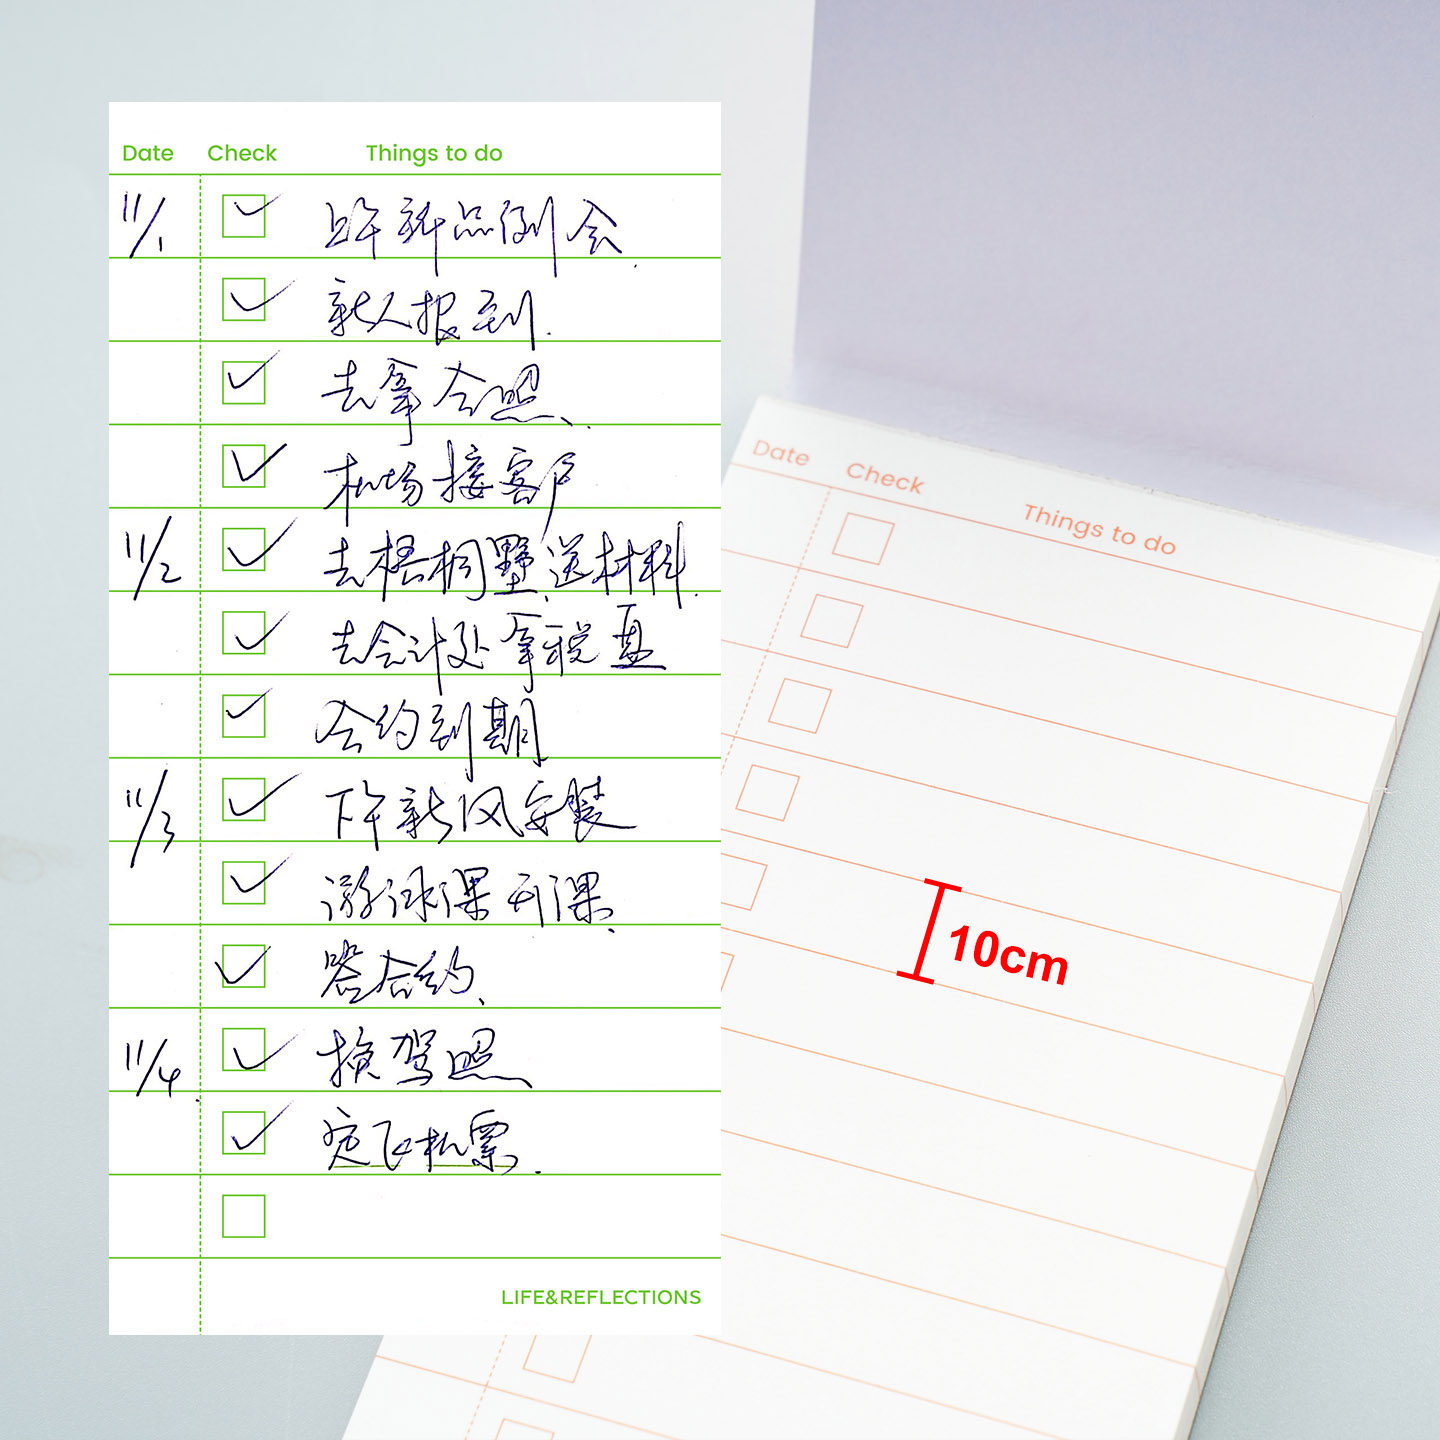 Date Check Things to do
11/1 上午新品例会.
新人报到.
去拿合照.
机场接客户
11/2 去梧桐墅送材料.
去会计处拿税盘
合约到期
11/3 下午新风安装
游泳课开课.
签合约.
11/4 换驾照.
定飞机票.
LIFE&REFLECTIONS
Date Check Things to do
10cm